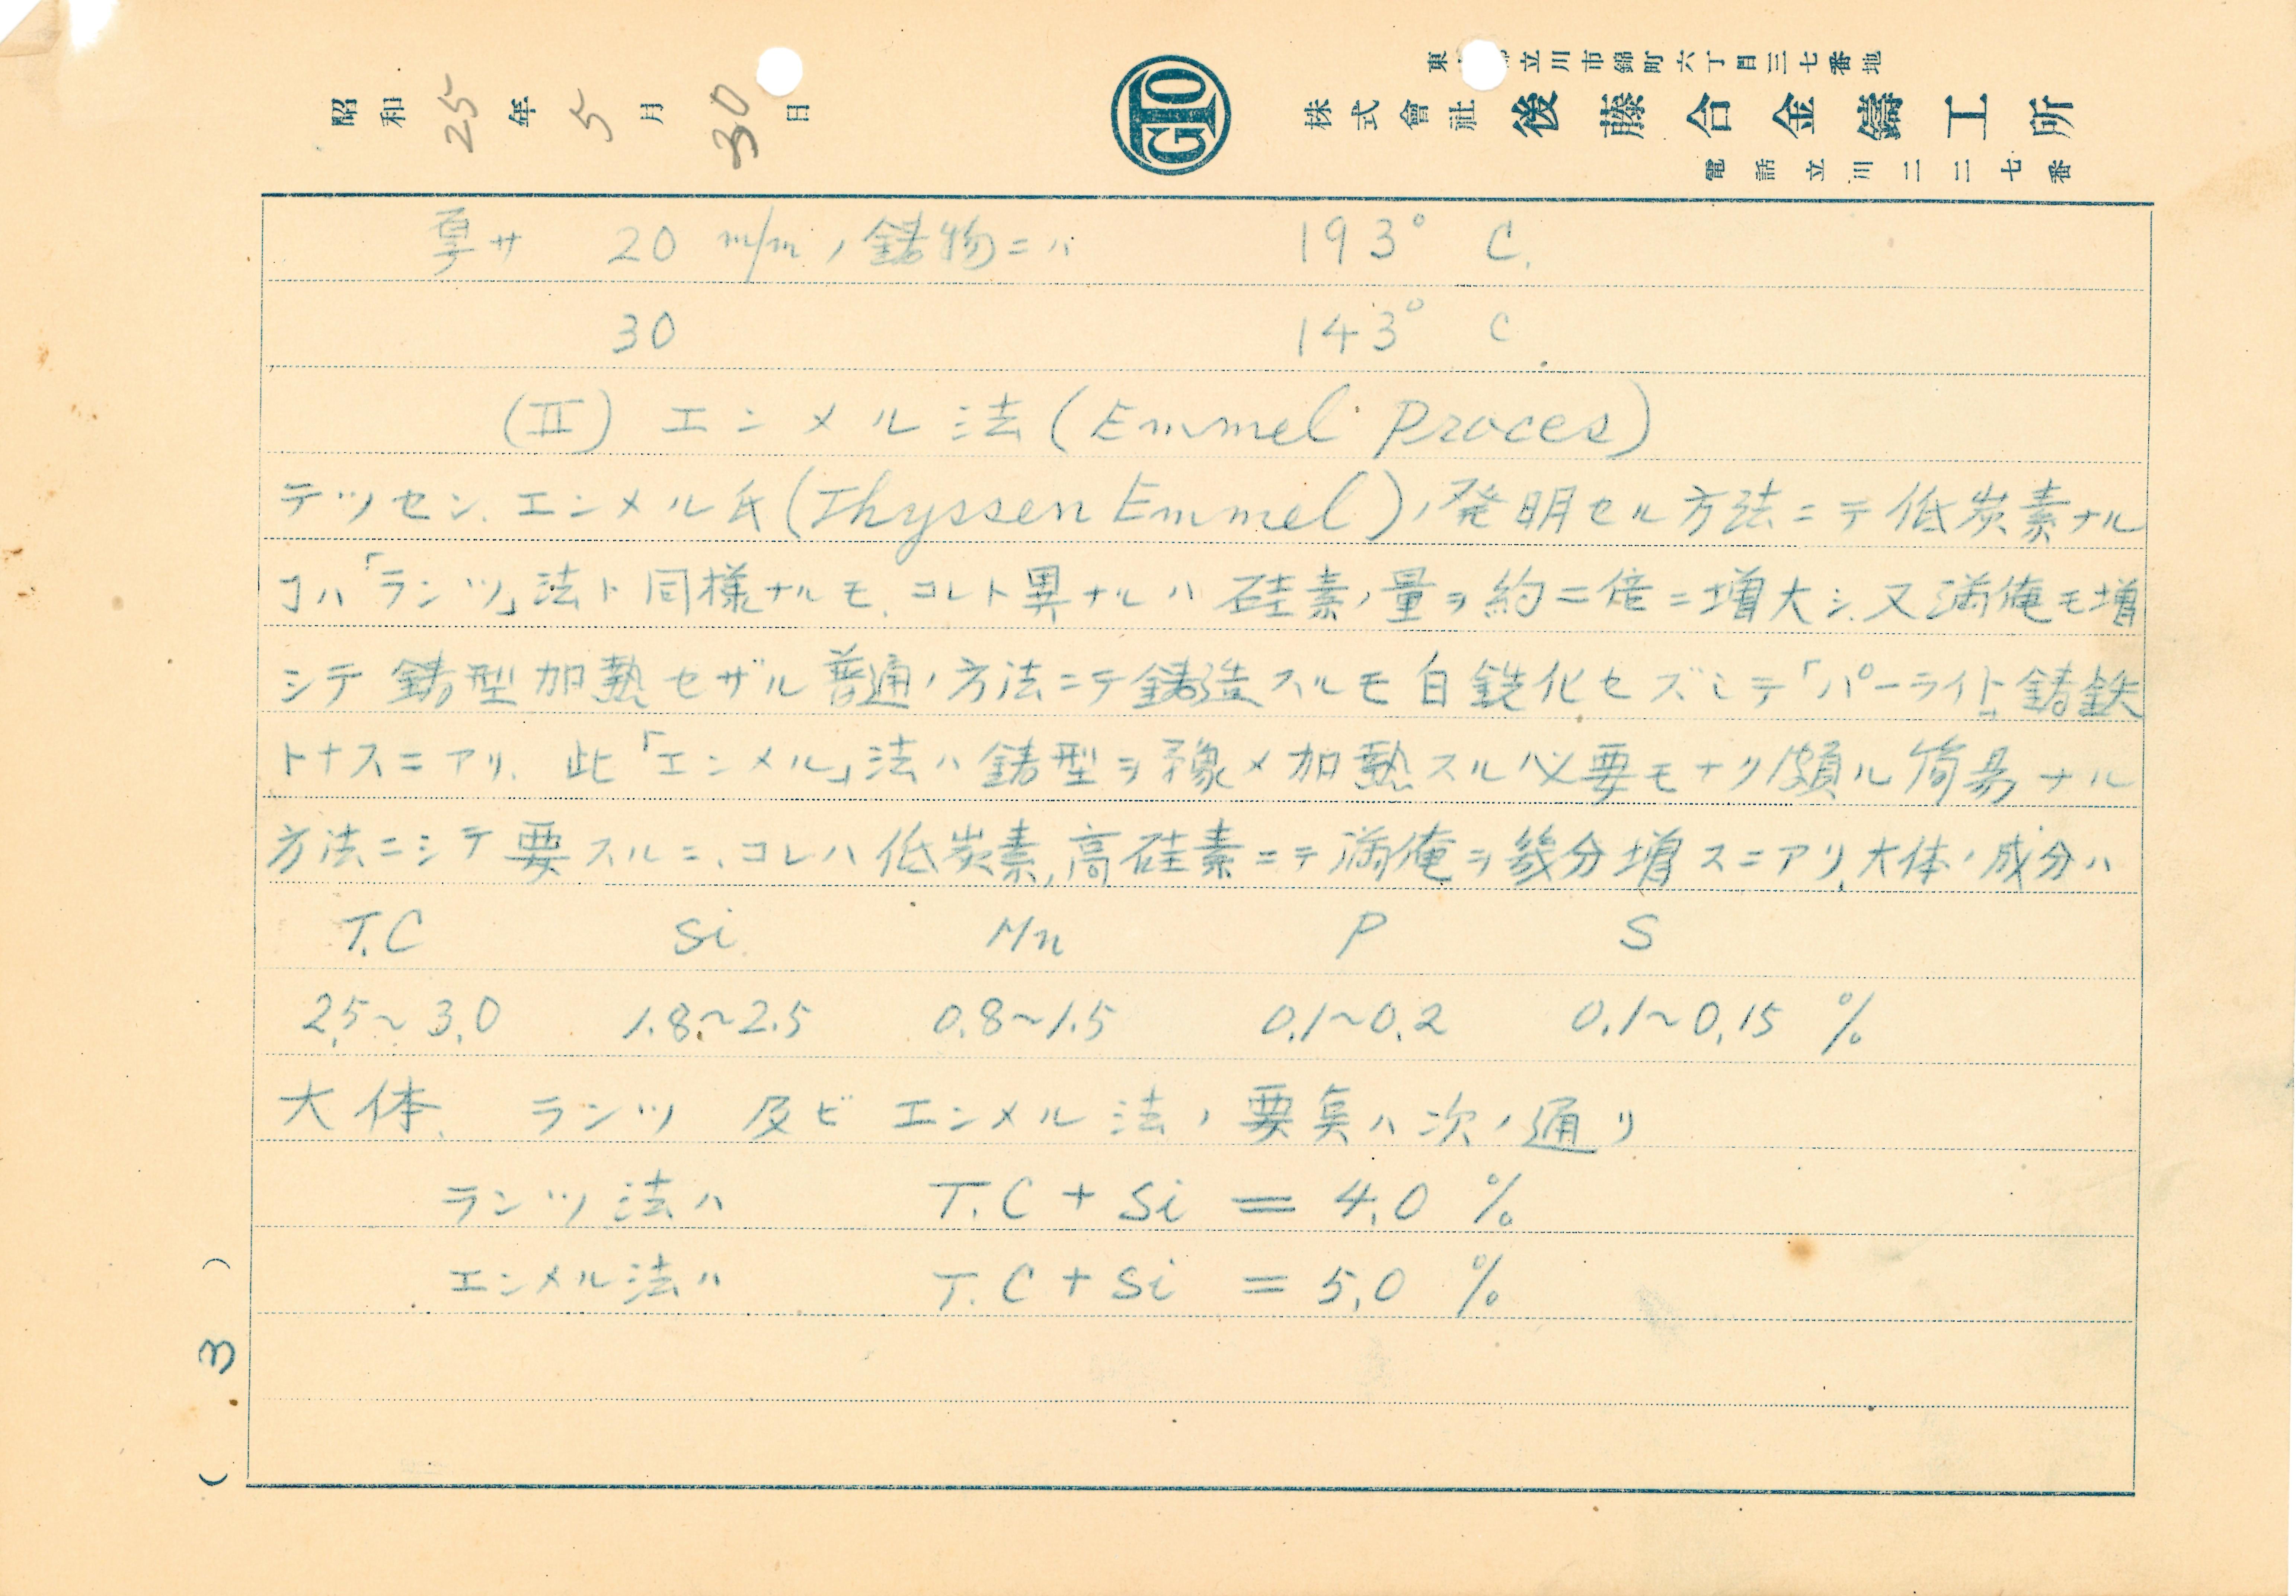 東 立川市錦町六丁目三七番地
昭和25年5月30日
GTO
株式會社後藤合金鑄工所
電話立川二二七番
厚サ 20 m/m ノ鋳物ニハ 193° C.
30 143° C
(Ⅱ) エンメル法 (Emmel Proces)
テッセン、エンメル氏(Thyssen Emmel)ノ発明セル方法ニテ低炭素ナル
コハ「ランツ」法ト同様ナルモ、コレト異ナルハ硅素ノ量ヲ約二倍ニ増大シ、又満俺モ増
シテ鋳型加熱セザル普通ノ方法ニテ鋳造スルモ白銑化セズシテ「パーライト」鋳鉄
トナスニアリ、此「エンメル」法ハ鋳型ヲ豫メ加熱スル必要モナク頗ル簡易ナル
方法ニシテ要スルニ、コレハ低炭素、高硅素ニテ満俺ヲ幾分増スニアリ、大体ノ成分ハ
T.C Si Mn P S
2.5~3.0 1.8~2.5 0.8~1.5 0.1~0.2 0.1~0.15 %
大体、ランツ 及ビ エンメル法ノ要臭ハ次ノ通リ
ランツ法ハ T.C + Si = 4.0 %
エンメル法ハ T.C + Si = 5.0 %
( 3 )